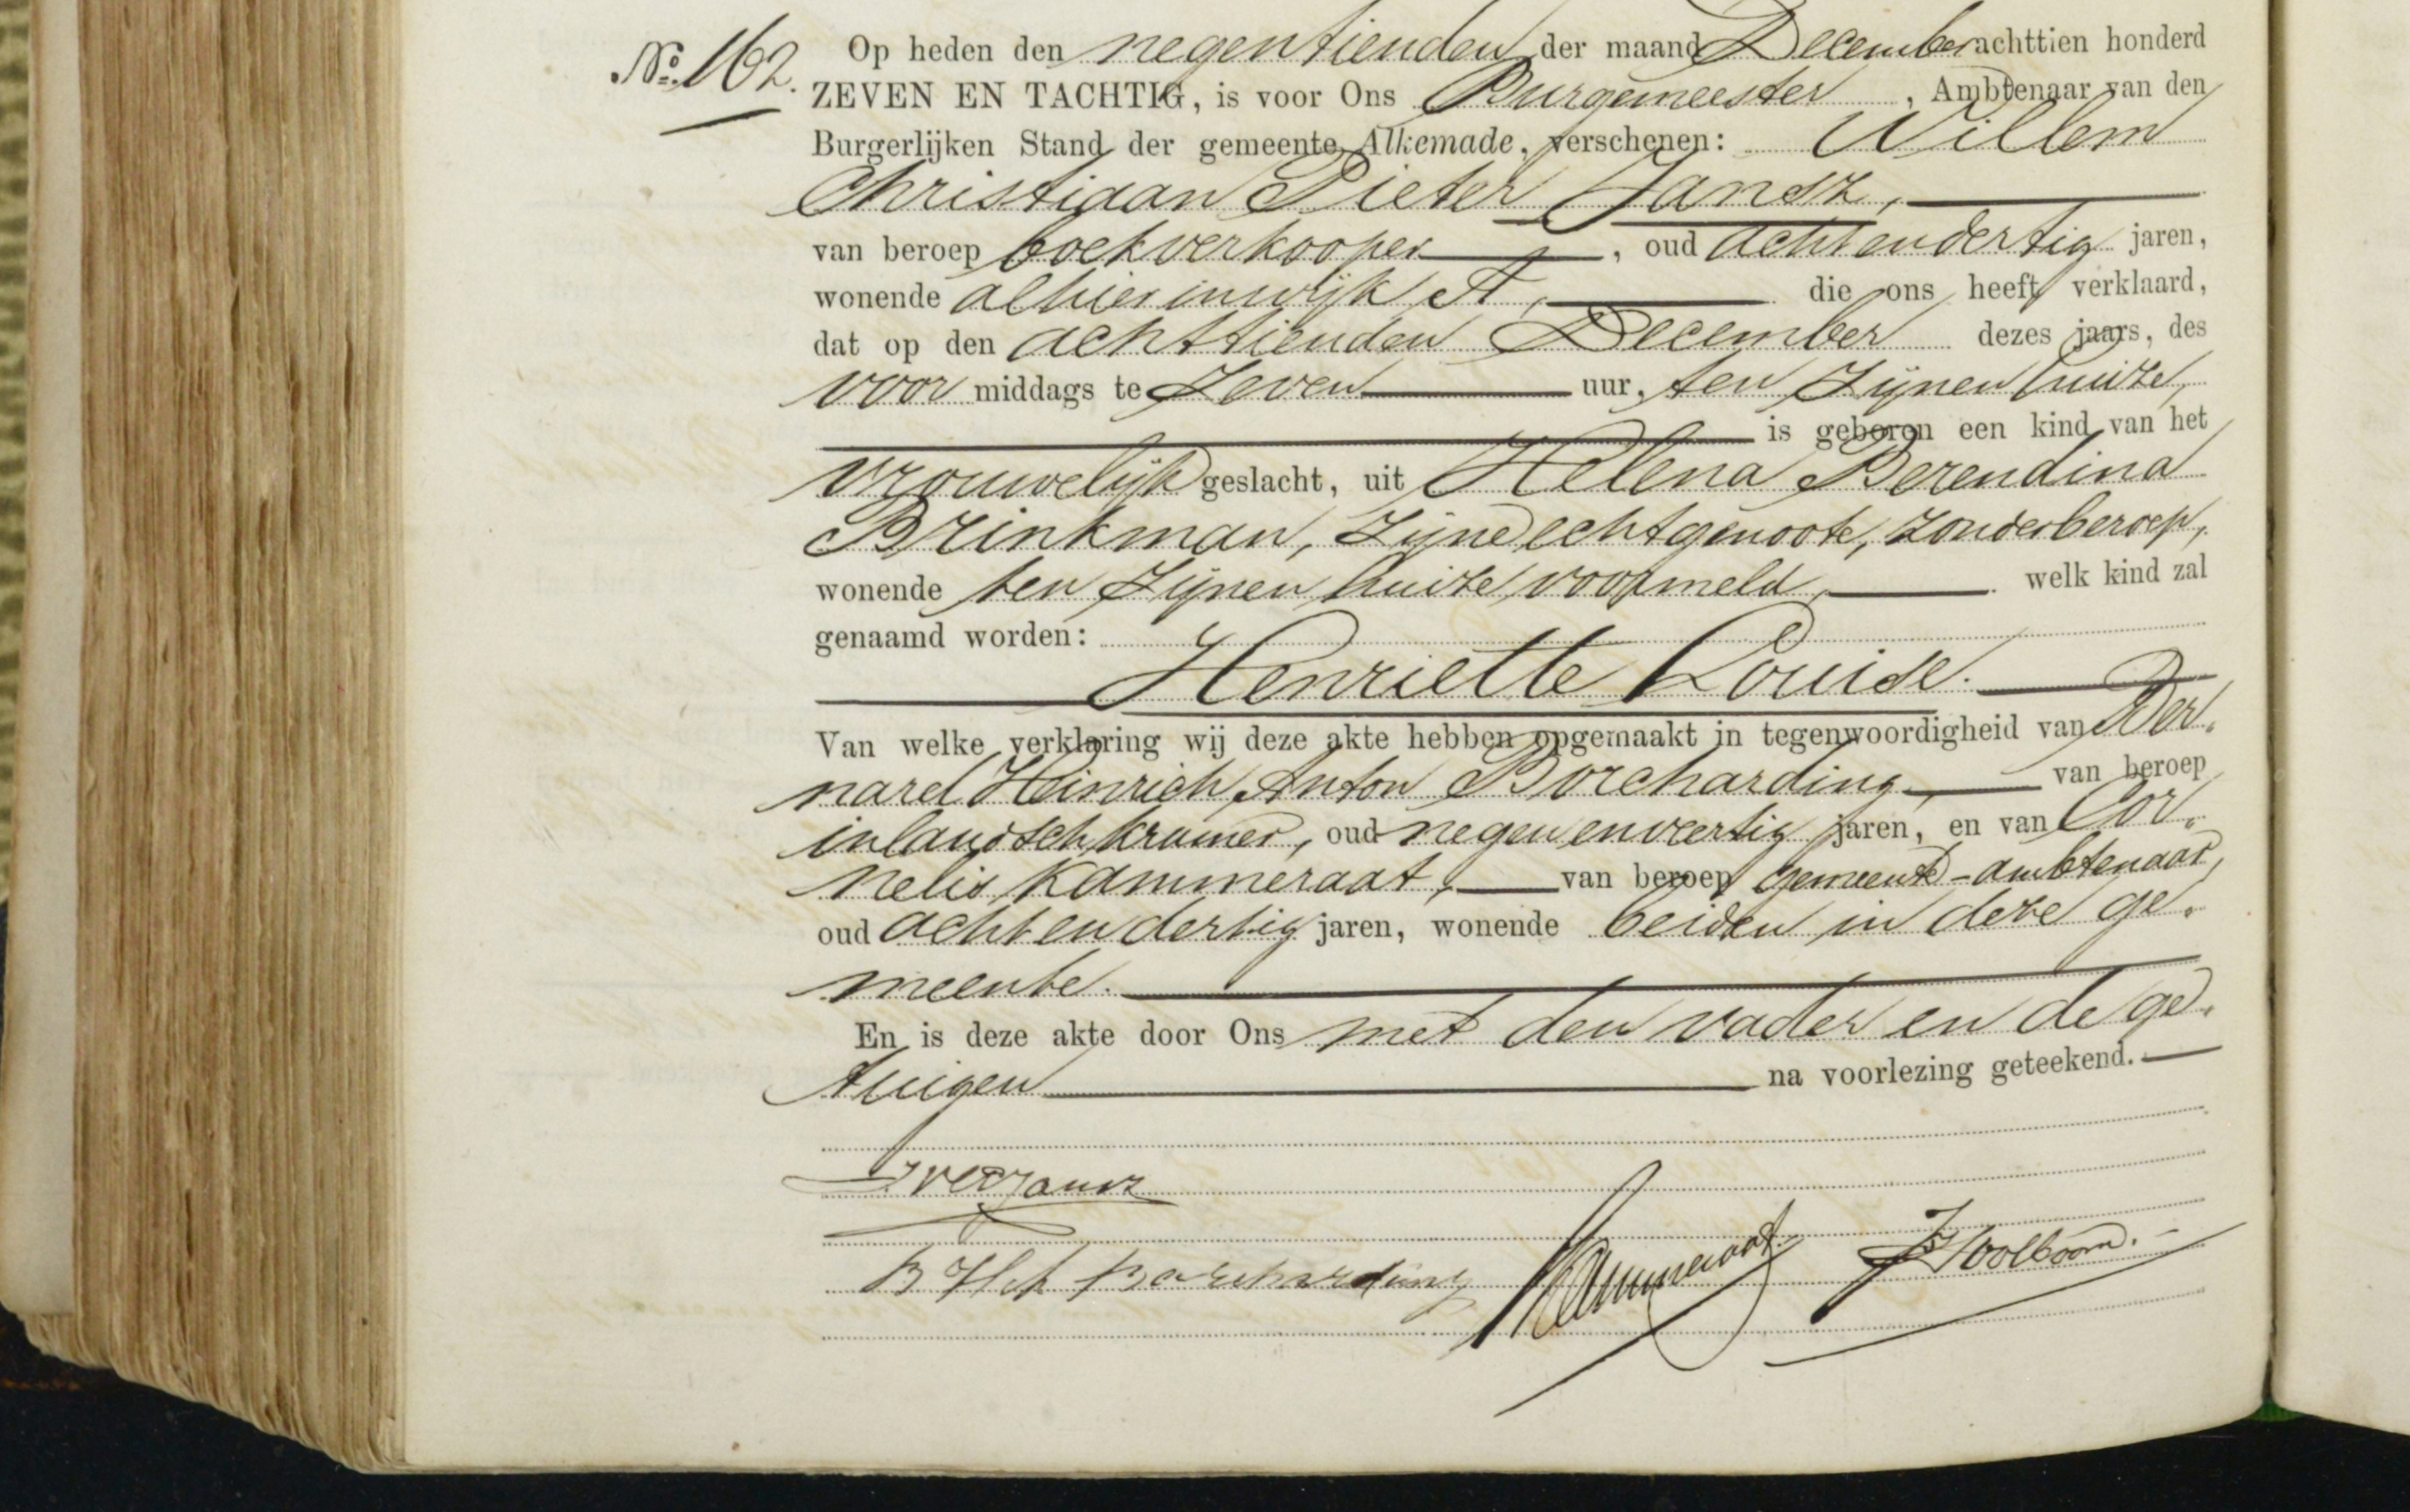 No. 162. Op heden den negentienden der maand December achttien honderd
ZEVEN EN TACHTIG, is voor Ons Burgemeester, Ambtenaar van den
Burgerlijken Stand der gemeente Alkemade, verschenen: Willem
Christiaan Pieter Jansz,
van beroep boekverkooper, oud achtendertig jaren,
wonende alhier in wijk A, die ons heeft verklaard,
dat op den achttienden December dezes jaars, des
voor middags te zeven uur, ten zijnen huize,
is geboren een kind van het
vrouwelijk geslacht, uit Helena Berendina
Brinkman, zijne echtgenoote, zonder beroep,
wonende ten zijnen huize voormeld, welk kind zal
genaamd worden:
Henriette Louise.
Van welke verklaring wij deze akte hebben opgemaakt in tegenwoordigheid van Ber-
nard Heinrich Anton Borcharding, van beroep
inlandsch kramer, oud negen en veertig jaren, en van Cor-
nelis Kammeraat, van beroep gemeente-ambtenaar,
oud acht en dertig jaren, wonende beiden in deze ge-
meente.
En is deze akte door Ons met den vader en de ge-
tuigen na voorlezing geteekend.
WCPJansz
BHA Borcharding Kammeraat. Hoolboom.